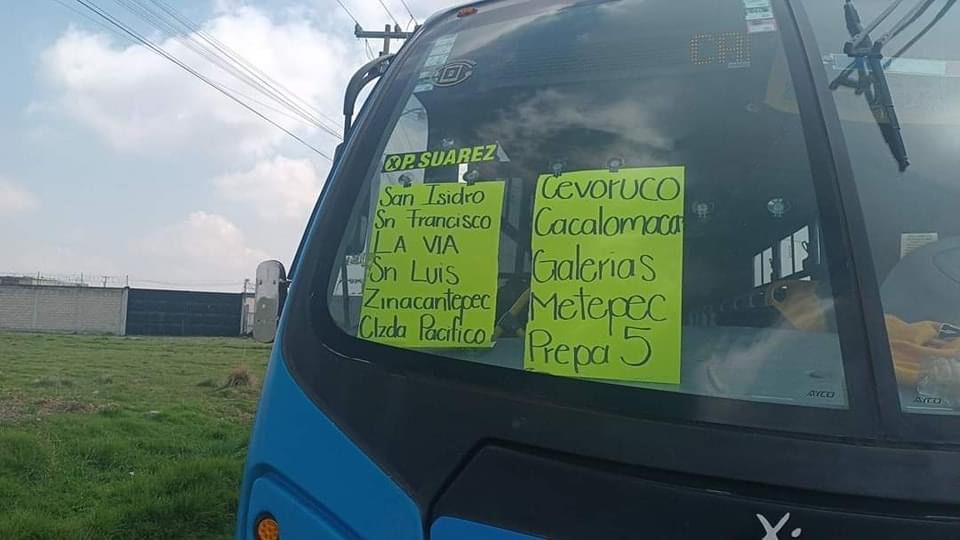 CAI
XP. SUAREZ
San Isidro
Sn Francisco
LA VIA
Sn Luis
Zinacantepec
Clzda Pacifico
Cevoruco
Cacalomacan
Galerias
Metepec
Prepa 5
AYCO
AYCO